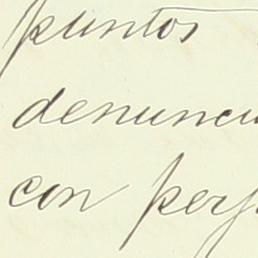 puntos
denuncu
con perj